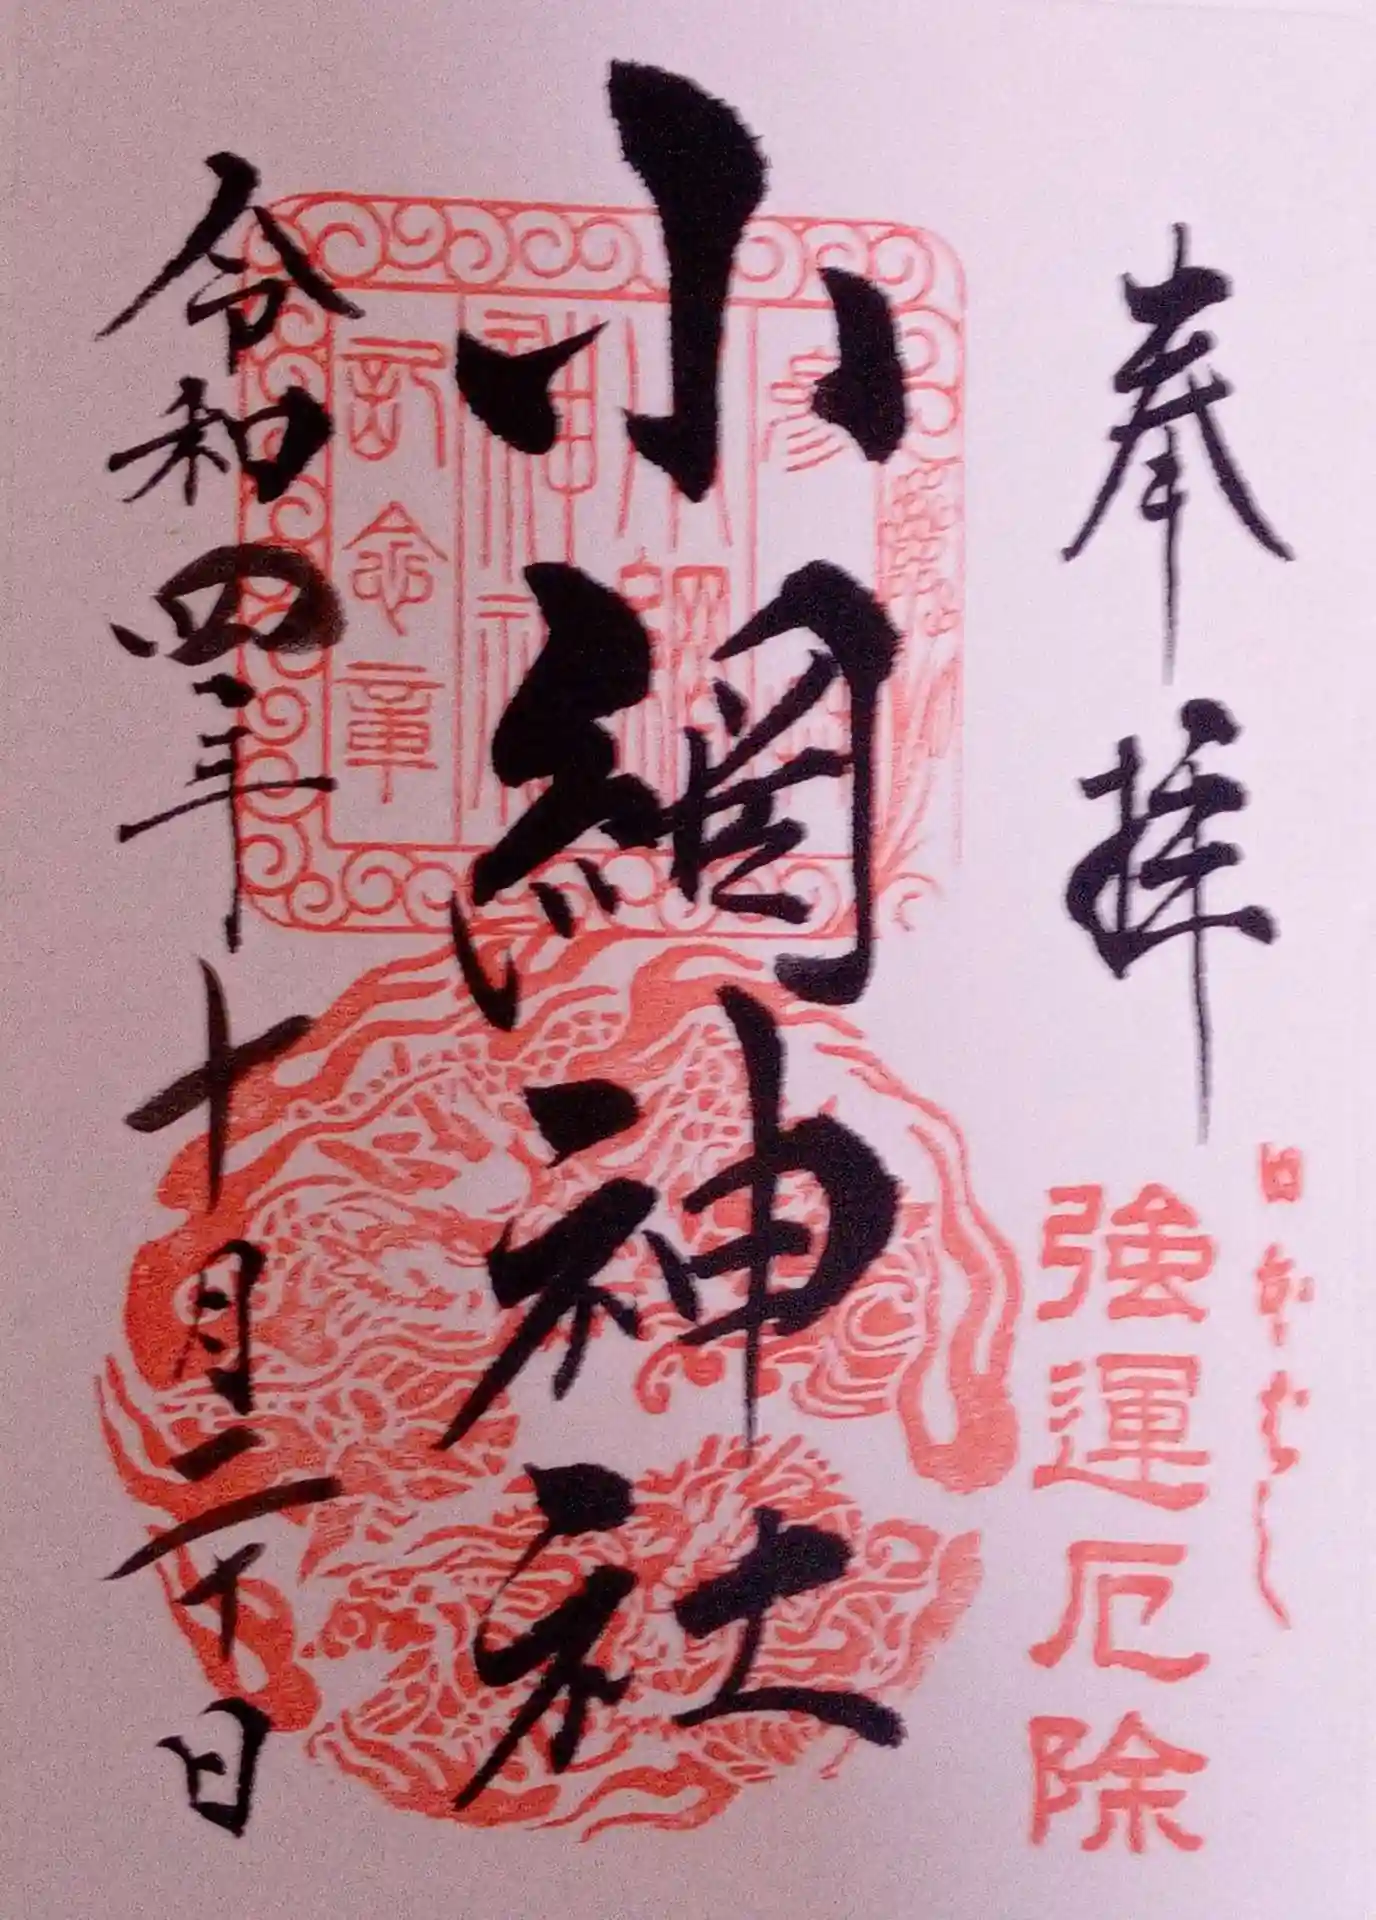 奉拝
強運厄除
小網神社
参拝
小網
神社
記念章
令和四年十月二十日